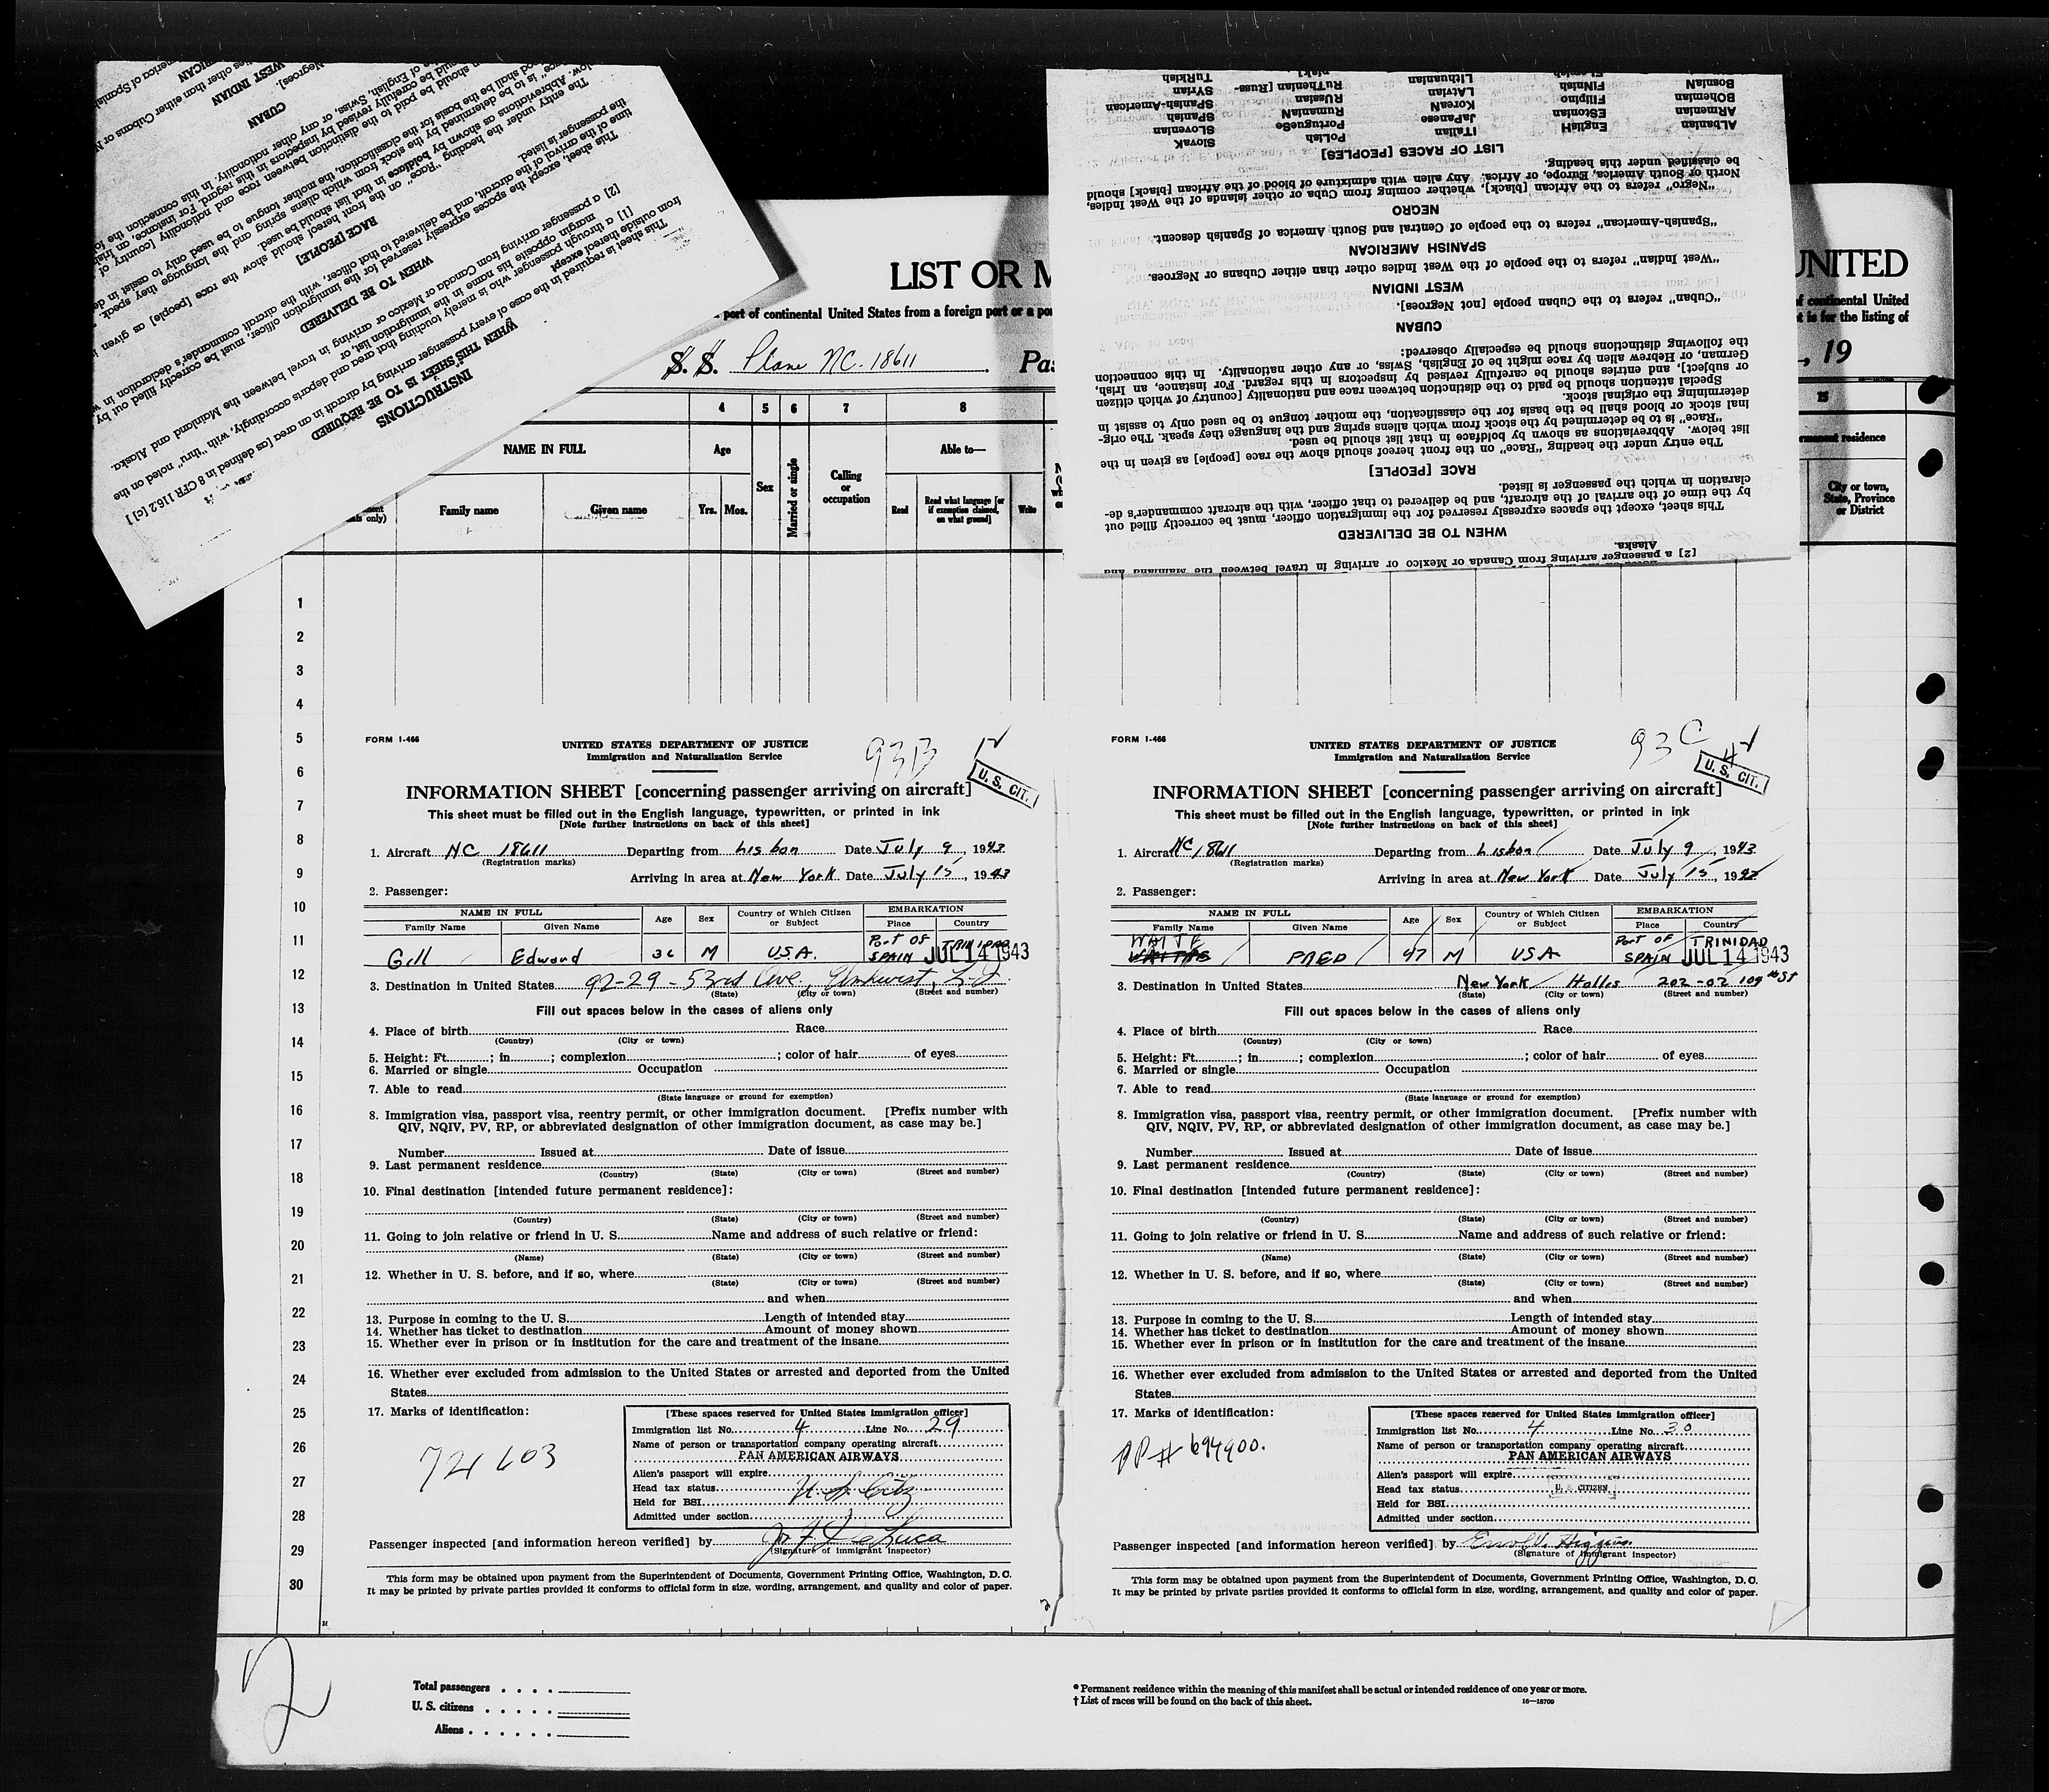 INSTRUCTIONS
WHEN THIS SHEET IS TO BE REQUIRED
This sheet is required in the case of every passenger arriving by aircraft in an area [as defined in 8 CFR 116.2 [c] ]
from outside thereof except
[1] a through passenger who is merely touching that area and departs accordingly, with "thru" noted on the
margin opposite his name in the immigration list, or
[2] a passenger arriving from Canada or Mexico or arriving in travel between the Mainland and Alaska.
WHEN TO BE DELIVERED
This sheet, except the spaces expressly reserved for the immigration officer, must be correctly filled out by
time of the arrival of the aircraft, and be delivered to that officer, with the aircraft commander's declaration in
the passenger is listed.
RACE [PEOPLE]
The entry under the heading "Race" on the front hereof should show the race [people] as given
CUBAN
WEST INDIAN
[2] a passenger arriving from Canada or Mexico or arriving in travel between the Mainland and
Alaska.
WHEN TO BE DELIVERED
This sheet, except the spaces expressly reserved for the immigration officer, must be correctly filled out
by the time of the arrival of the aircraft, and be delivered to that officer, with the aircraft commander's de-
claration in which the passenger is listed.
RACE [PEOPLE]
The entry under the heading "Race" on the front hereof should show the race [people] as given in the
list below. Abbreviations as shown by boldface in that list should be used.
"Race" is to be determined by the stock from which aliens spring and the language they speak. The orig-
inal stock or blood shall be the basis for the classification, the mother tongue to be used only to assist in
determining the original stock.
Special attention should be paid to the distinction between race and nationality [country of which citizen
or subject], and entries should be carefully revised by inspectors in this regard. For instance, an Irish,
German, or Hebrew alien by race might be of English, Swiss, or any other nationality. In this connection
the following distinctions should be especially observed:
CUBAN
"Cuban" refers to the Cuban people [not Negroes].
WEST INDIAN
"West Indian" refers to the people of the West Indies other than either Cubans or Negroes.
SPANISH AMERICAN
"Spanish-American" refers to the people of Central and South America of Spanish descent.
NEGRO
"Negro" refers to the African [black], whether coming from Cuba or other islands of the West Indies,
North or South America, Europe, or Africa. Any alien with admixture of blood of the African [black] should
be classified under this heading.
LIST OF RACES [PEOPLES]
ALbanian EnglisH ITalian PoLish SlovaK
ARmenian EStonian JaPanese PortuGuese SLOvenian
BOHemian FiLipino KoreaN RumaniaN SPanish
BosniaN FINNish LAtvian RUssian SPanish-American
Lithuanian RuThenian [Russ- SYrian
niak] TuRkish
LIST OR M
UNITED
port of continental United States from a foreign port or a po
of continental United
t is for the listing of
S. S. Plane NC-18611 Pas
, 19
4 5 6 7 8 15
NAME IN FULL Age Sex Married or single Calling or occupation Able to— permanent residence
Family name Given name Yrs. Mos. Read Read what language [or if exemption claimed, on what ground] Write City or town, State, Province or District
1
2
3
4
5
6
7
8
9
10
11
12
13
14
15
16
17
18
19
20
21
22
23
24
25
26
27
28
29
30
FORM I-466
UNITED STATES DEPARTMENT OF JUSTICE
Immigration and Naturalization Service
93B
U. S. CIT.
INFORMATION SHEET [concerning passenger arriving on aircraft]
This sheet must be filled out in the English language, typewritten, or printed in ink
[Note further instructions on back of this sheet]
1. Aircraft NC 18611 Departing from Lisbon Date July 9, 1943
(Registration marks)
Arriving in area at New York Date July 15, 1943
2. Passenger:
NAME IN FULL Age Sex Country of Which Citizen or Subject EMBARKATION
Family Name Given Name Place Country
Gill Edward 36 M USA. Port of SPAIN TRINIDAD JUL 14 1943
3. Destination in United States 92-29 - 53rd Ave., Elmhurst, L.I.
(State) (City or town) (Street and number)
Fill out spaces below in the cases of aliens only
4. Place of birth Race
(Country) (City or town)
5. Height: Ft. ; in ; complexion ; color of hair of eyes
6. Married or single Occupation
7. Able to read
(State language or ground for exemption)
8. Immigration visa, passport visa, reentry permit, or other immigration document. [Prefix number with
QIV, NQIV, PV, RP, or abbreviated designation of other immigration document, as case may be.]
Number Issued at Date of issue
9. Last permanent residence
(Country) (State) (City or town) (Street and number)
10. Final destination [intended future permanent residence]:
(Country) (State) (City or town) (Street and number)
11. Going to join relative or friend in U. S. Name and address of such relative or friend:
(Name) (State) (City or town) (Street and number)
12. Whether in U. S. before, and if so, where
(State) (City or town) (Street and number)
and when
13. Purpose in coming to the U. S. Length of intended stay
14. Whether has ticket to destination Amount of money shown
15. Whether ever in prison or in institution for the care and treatment of the insane
16. Whether ever excluded from admission to the United States or arrested and deported from the United
States
17. Marks of identification:
[These spaces reserved for United States immigration officer]
Immigration list No. 4 Line No. 29
Name of person or transportation company operating aircraft
PAN AMERICAN AIRWAYS
Alien's passport will expire
Head tax status U. S. Citz
Held for BSI
Admitted under section
Passenger inspected [and information hereon verified] by
(Signature of immigrant inspector)
This form may be obtained upon payment from the Superintendent of Documents, Government Printing Office, Washington, D. C.
It may be printed by private parties provided it conforms to official form in size, wording, arrangement, and quality and color of paper.
FORM I-466
UNITED STATES DEPARTMENT OF JUSTICE
Immigration and Naturalization Service
93C
U. S. CIT.
INFORMATION SHEET [concerning passenger arriving on aircraft]
This sheet must be filled out in the English language, typewritten, or printed in ink
[Note further instructions on back of this sheet]
1. Aircraft NC 18611 Departing from Lisbon Date July 9, 1943
(Registration marks)
Arriving in area at New York Date July 15, 1943
2. Passenger:
NAME IN FULL Age Sex Country of Which Citizen or Subject EMBARKATION
Family Name Given Name Place Country
WAITE FRED 47 M USA Port of SPAIN TRINIDAD JUL 14 1943
3. Destination in United States New York Hollis 202-02 109th St
(State) (City or town) (Street and number)
Fill out spaces below in the cases of aliens only
4. Place of birth Race
(Country) (City or town)
5. Height: Ft. ; in ; complexion ; color of hair of eyes
6. Married or single Occupation
7. Able to read
(State language or ground for exemption)
8. Immigration visa, passport visa, reentry permit, or other immigration document. [Prefix number with
QIV, NQIV, PV, RP, or abbreviated designation of other immigration document, as case may be.]
Number Issued at Date of issue
9. Last permanent residence
(Country) (State) (City or town) (Street and number)
10. Final destination [intended future permanent residence]:
(Country) (State) (City or town) (Street and number)
11. Going to join relative or friend in U. S. Name and address of such relative or friend:
(Name) (State) (City or town) (Street and number)
12. Whether in U. S. before, and if so, where
(State) (City or town) (Street and number)
and when
13. Purpose in coming to the U. S. Length of intended stay
14. Whether has ticket to destination Amount of money shown
15. Whether ever in prison or in institution for the care and treatment of the insane
16. Whether ever excluded from admission to the United States or arrested and deported from the United
States
17. Marks of identification:
PP# 694900.
[These spaces reserved for United States immigration officer]
Immigration list No. 4 Line No. 30
Name of person or transportation company operating aircraft
PAN AMERICAN AIRWAYS
Alien's passport will expire
Head tax status U. S. CITIZEN
Held for BSI
Admitted under section
Passenger inspected [and information hereon verified] by Errol V. Higgins
(Signature of immigrant inspector)
This form may be obtained upon payment from the Superintendent of Documents, Government Printing Office, Washington, D. C.
It may be printed by private parties provided it conforms to official form in size, wording, arrangement, and quality and color of paper.
2
Total passengers
U. S. citizens
Aliens
* Permanent residence within the meaning of this manifest shall be actual or intended residence of one year or more.
† List of races will be found on the back of this sheet. 16—18709